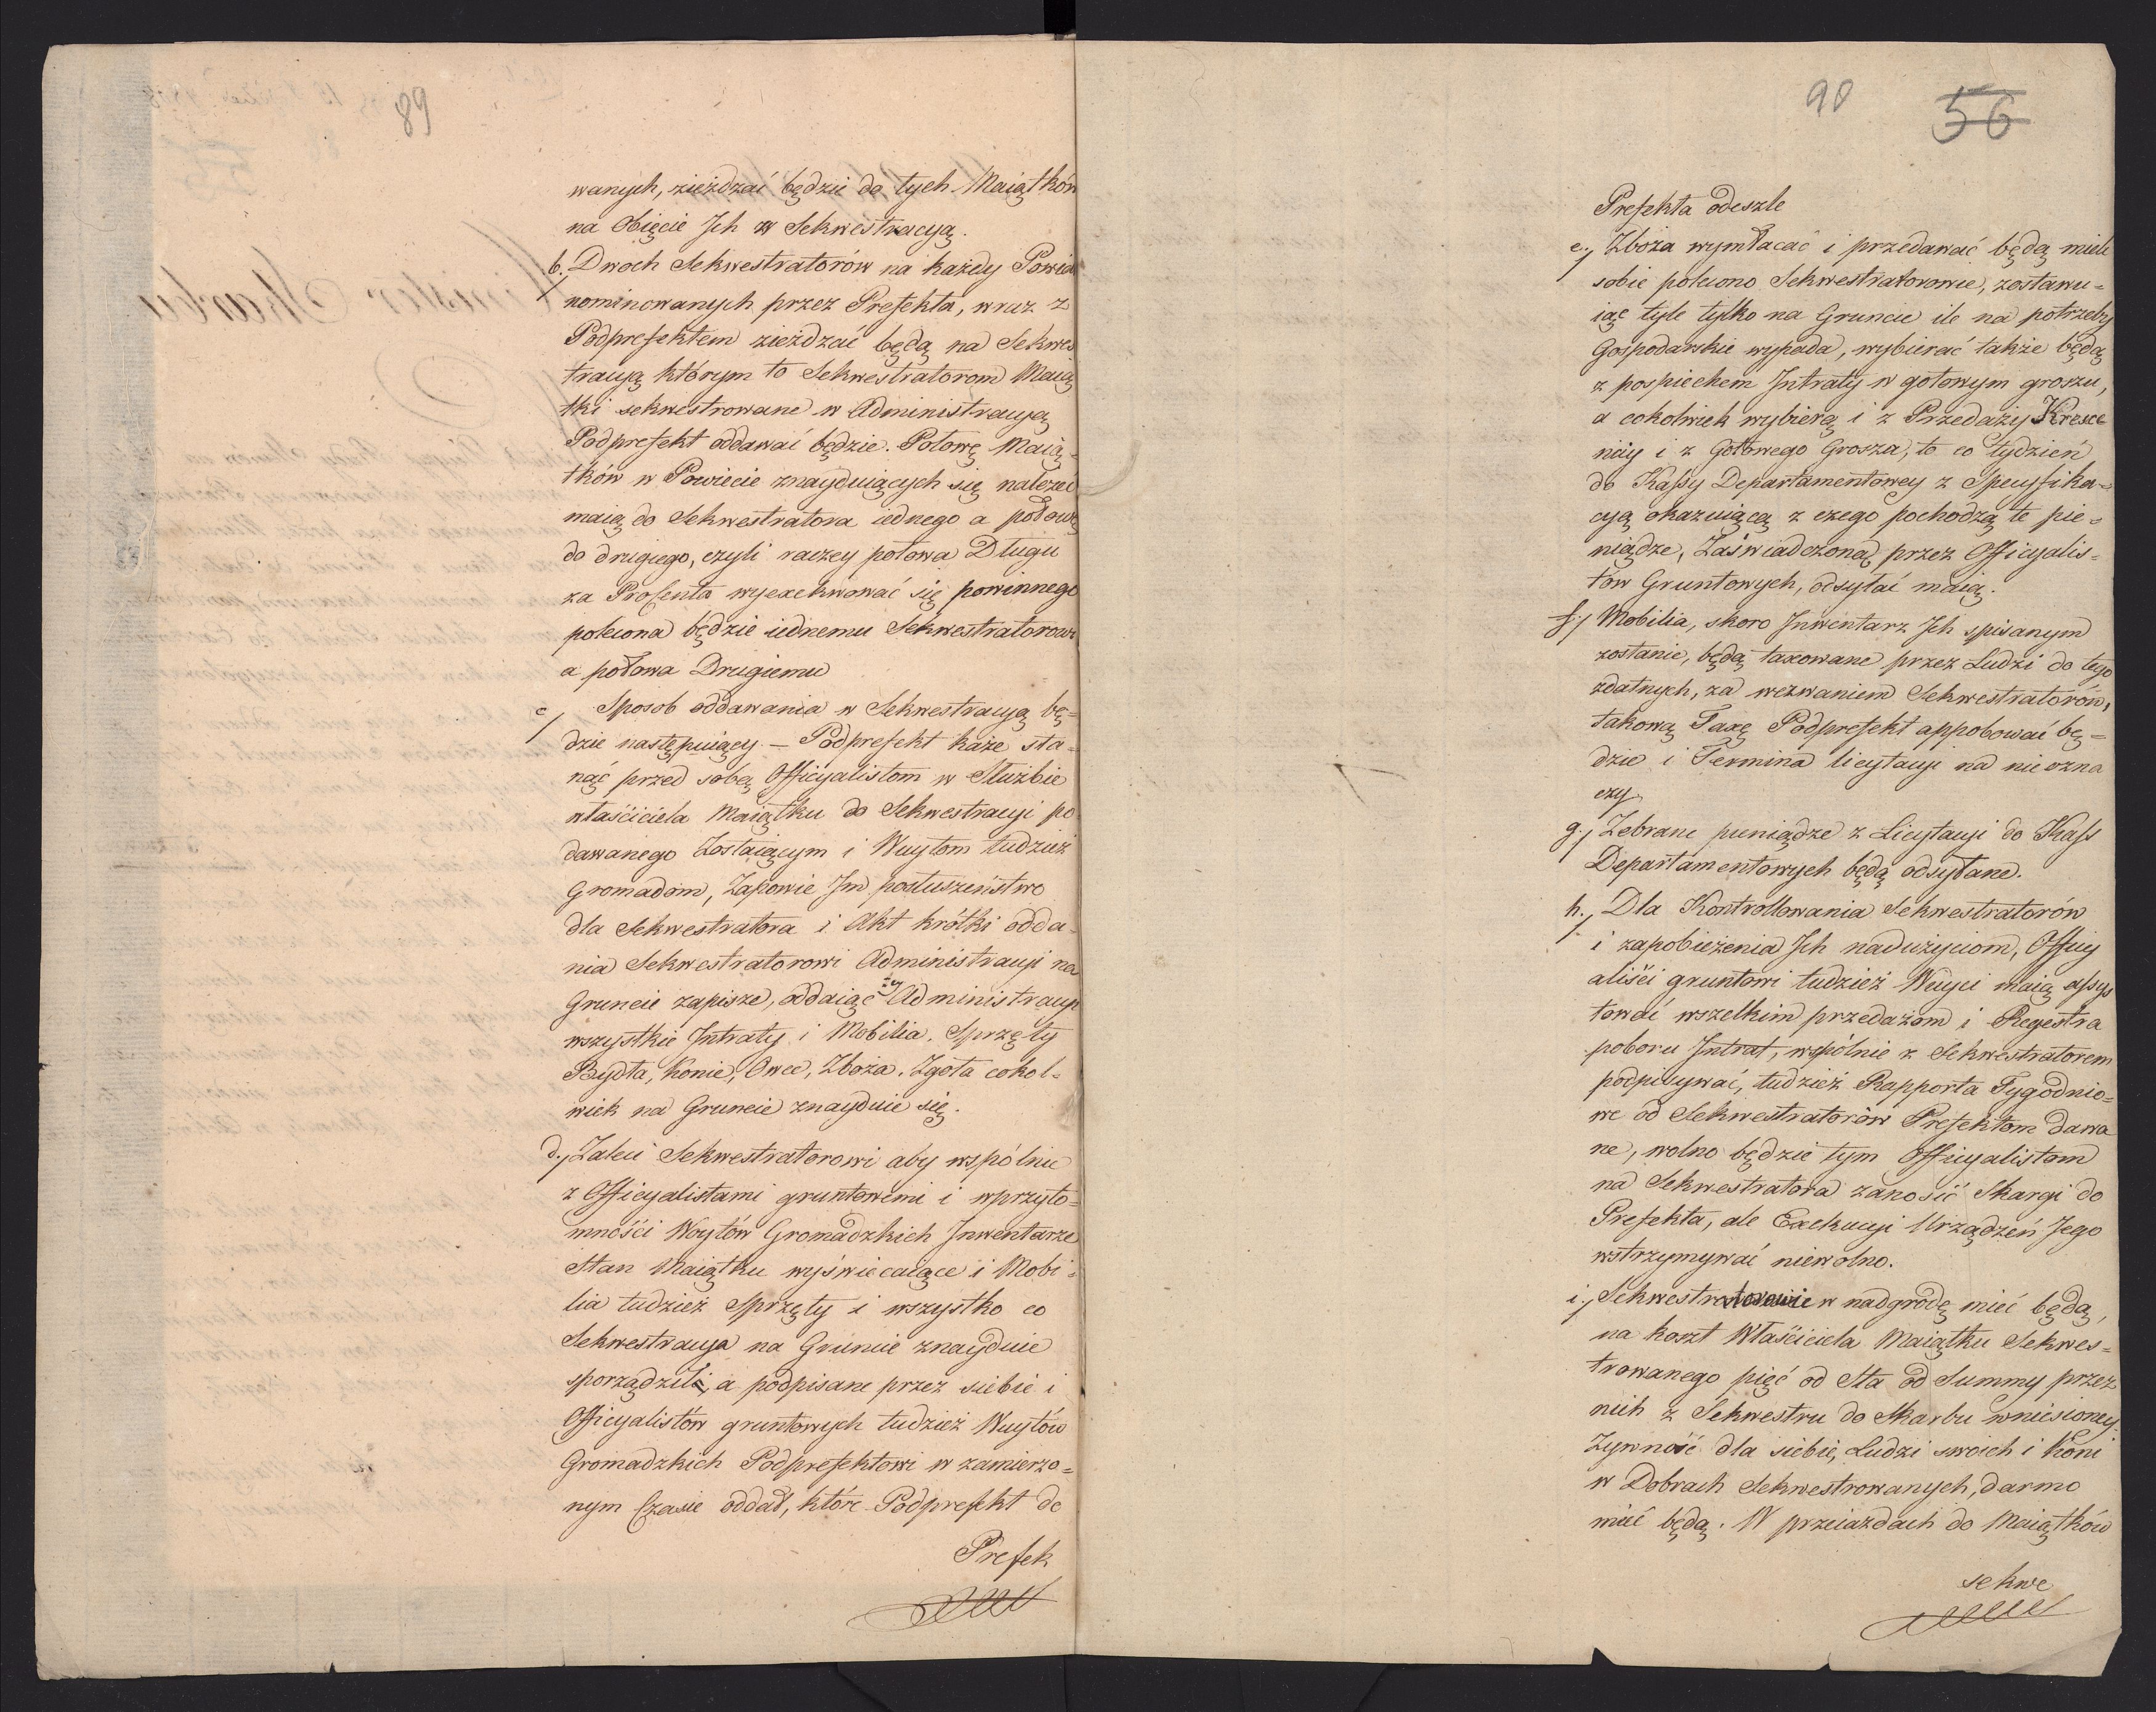 89
wanych, zieżdzać będzie do tych Maiątków
na Obięcie Jch w Sekwestracyą.
b., Dwoch Sekwestratorów na każdy Powia
nominowanych przez Prefekta, wraz z
Podprefektem zieżdzać będą na Sekwes
tracyą którym to Sekwestratorom Maią
tki sekwestrowane w Administracyą
Podprefekt oddawać będzie. Połowę Maią=
tków w Powiecie znayduiących się należeć
maią do Sekwestratora iednego a połowę
do drugiego, czyli raczey połowa Długu
za Procenta wyexekwować się powinnego
polecona będzie iednemu Sekwestratorowi
a połowa Drugiemu
c, Sposob oddawania w Sekwestracyą bę=
dzie następuiący. — Podprefekt każe sta=
nąć przed sobą Officyalistom w Służbie
właściciela Maiątku do Sekwestracyi po
dawanego Zostaiącym i Wuytom tudzież
Gromadom, Zapowie Jm posłuszeństwo
dla Sekwestratora i Akt krótki odda=
nia Sekwestratorowi Administracyi na
Gruncie zapisze, oddaiąc Administracyi
wszystkie Jntraty i Mobilia, Sprzęty
Bydła, Konie, Owce, Zboża, Zgoła cokol=
wiek na Gruncie znayduie się.
d., Zaleci Sekwestratorowi aby wspólnie
z Officyalistami gruntowemi i w przyto=
mności Woytów Gromadzkich Jnwentarze
Stan Maiątku wyświecaiące i Mobi=
lia tudzież Sprzęty i wszystko co
Sekwestracya na Gruncie znayduie
sporządzili, a podpisane przez siebie i
Officyalistów gruntowych tudzież Wuytów
Gromadzkich Podprefektowi w zamierzo=
nym Czasie oddał, które Podprefekt do
Prefek
90
56
Prefekta odeszle
e., Zboża wymłacać i przedawać będą mieli
sobie polecono Sekwestratorowie, zostawu=
iąc tyle tylko na Gruncie ile na potrzeby
Gospodarskie wypada, wybierać także będą
z pospiechem Jntraty w gotowym groszu,
a cokolwiek wybierą i z Przedaży Kresce
ncyi i z Gotowego Grosza, to co tydzień
do Kassy Departamentowey z Specyfika=
cyą okazuiącą z czego pochodzą te pie=
niądze, Zaświadczoną przez Officyalis=
tów Gruntowych, odsyłać maią.
f., Mobilia, skoro Jnwentarz Jch spisanym
zostanie, będą taxowane przez Ludzi do tego
zdatnych, za wezwaniem Sekwestratorów,
takową Taxę Podprefekt appobować bę=
dzie i Termina licytacyi na nie ozna
czy
g., Zebrane pieniądze z Licytacyi do Kass
Departamentowych będą odsyłane.
h., Dla Kontrollowania Sekwestratorów
i zapobieżenia Jch nadużyciom, Officy
aliści gruntowi tudzież Wuyci maią assys
tować wszelkim przedażom i Regestra
poboru Jntrat, wspólnie z Sekwestratorem
podpisywać, tudzież Rapporta Tygodnio=
we od Sekwestratorów Prefektom dawa
ne, wolno będzie tym Officyalistom
na Sekwestratora zanosić Skargi do
Prefekta, ale Exekucyi Urządzeń Jego
wstrzymywać niewolno.
i., Sekwestratorowie w nadgrodę mieć będą,
na koszt Właściciela Maiątku Sekwes=
trowanego pięć od Sta od Summy przez
nich z Sekwestru do Skarbu wniesioney.
Żywność dla siebie, Ludzi swoich i Koni
w Dobrach Sekwestrowanych, darmo
mieć będą. W przeiazdach do Maiątków
sekwe